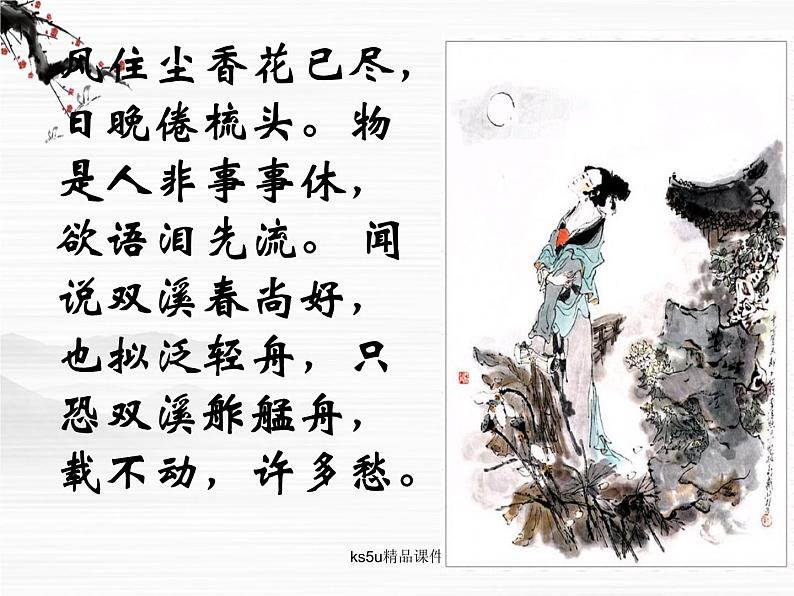 风住尘香花已尽，
日晚倦梳头。物
是人非事事休，
欲语泪先流。 闻
说双溪春尚好，
也拟泛轻舟，只
恐双溪舴艋舟，
载不动，许多愁。
ks5u精品课件